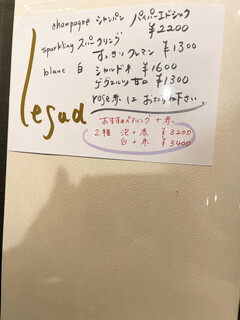 champagne シャンパン パイパーエドシック
¥2200
sparkling スパークリング
すっきりクレマン ¥1300
blanc 白 シャルドネ ¥1600
ゲヴュルツ 甘口 ¥1300
rose赤は おたずね下さい
Legad
おすすめペアリング + 赤
2種 泡 + 赤 ¥3200
白 + 赤 ¥3400